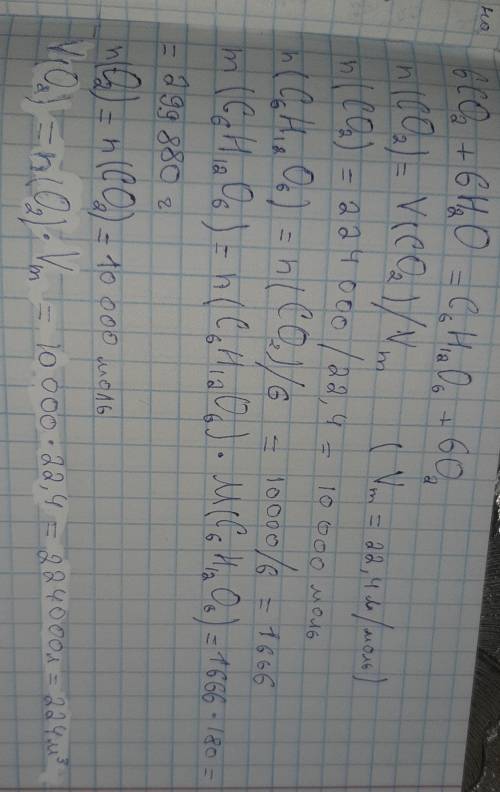 на
6CO₂ + 6H₂O = C₆H₁₂O₆ + 6O₂
n(CO₂) = V(CO₂)/Vm (Vm = 22,4 л/моль)
n(CO₂) = 224000/22,4 = 10000 моль
n(C₆H₁₂O₆) = n(CO₂)/6 = 10000/6 = 1666
m(C₆H₁₂O₆) = n(C₆H₁₂O₆)·M(C₆H₁₂O₆) = 1666·180 =
= 299880 г
n(O₂) = n(CO₂) = 10000 моль
V(O₂) = n(O₂)·Vm = 10000·22,4 = 224000л = 224м³